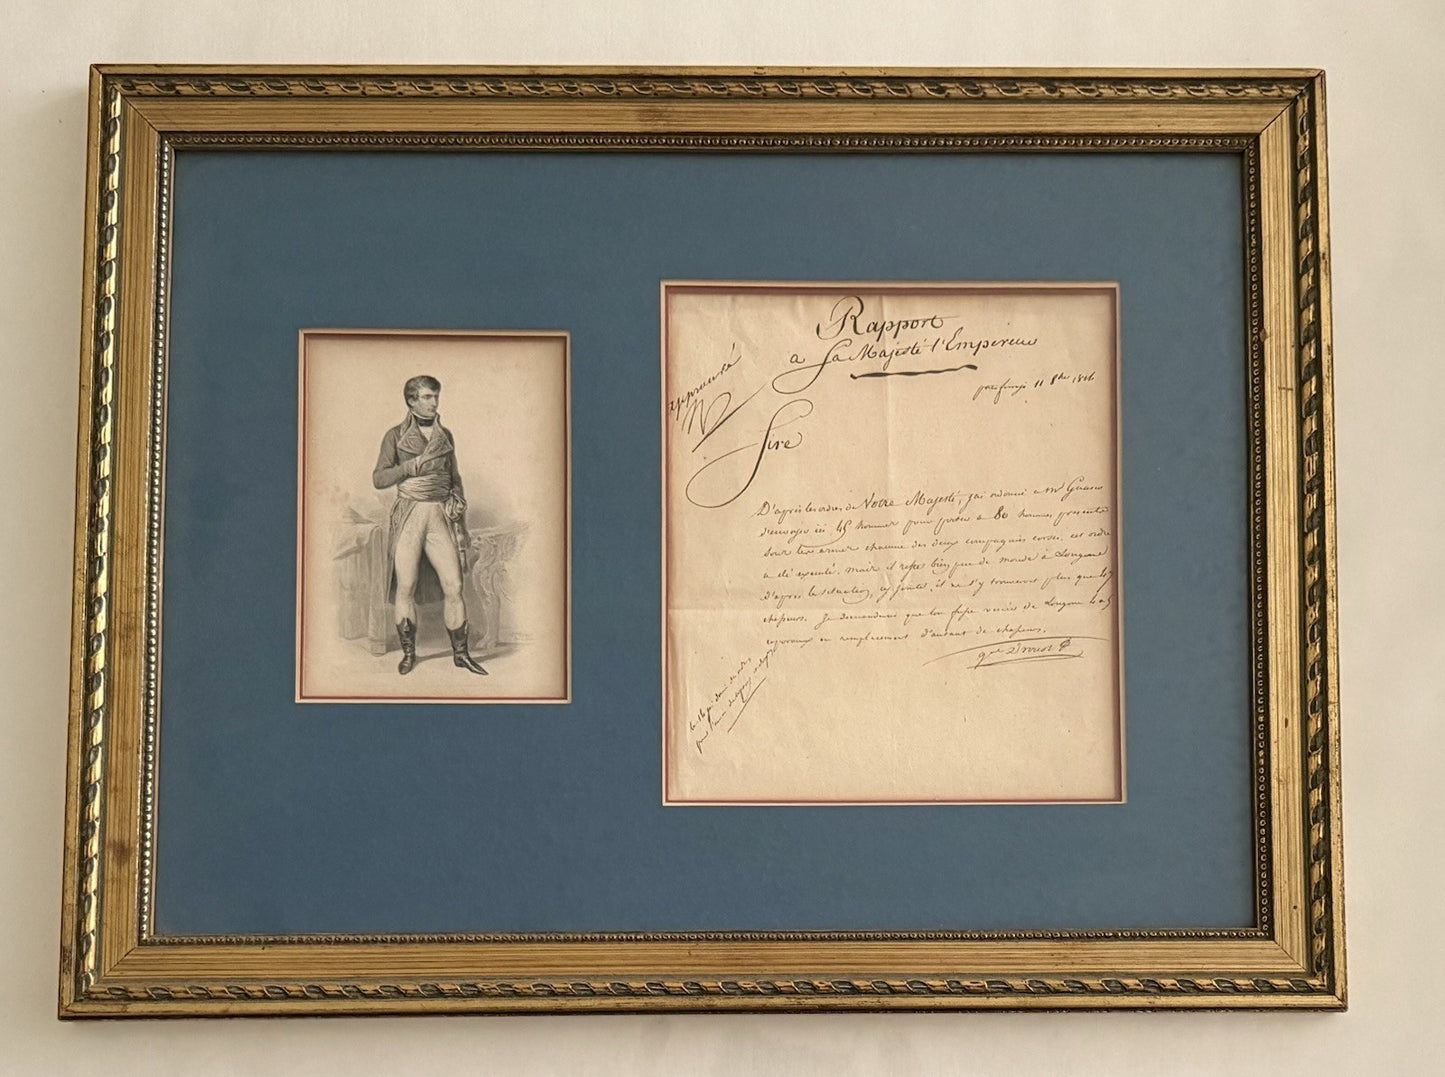 Rapport
a Sa Majesté l'Empereur
approuvé
N
porto ferrajo 11 8bre 1814
Sire
D'après les ordres de Votre Majesté, j'ai ordonné a Mr
d'envoyer ici 45 hommes pour porter a 80 hommes presents
sous les armes chacune des deux compagnies corses, cet ordre
a été executé. mais il reste bien peu de monde à Longone
d'après la situation, cy jointe, il ne s'y trouverait plus que les
chasseurs. Je demanderai que l'on fasse venir de Longone
en remplacement d'autant de chasseurs.
gal Drouot
le 12 j'ai donné des ordres
pour